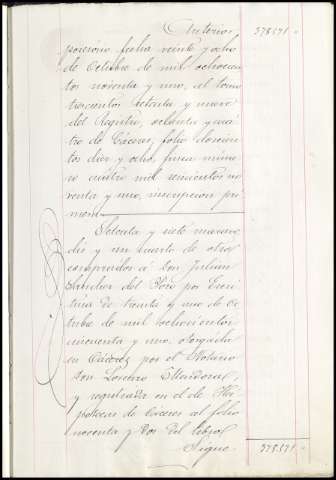 Anterior 378.571 "
posesion fecha veinte y ocho
de Octubre de mil ochocien
tos noventa y uno, al tomo
trescientos setenta y nueve
del Registro, ochenta y cua
tro de Cáceres, folio doscien
tos diez y ocho, finca núme
ro cuatro mil seiscientos no
venta y uno, inscripcion pri
mera
Setenta y siete marave
dis y un cuarto de otro
comprados á Don Julian
Sanchez del Pozo por Escri
tura de treinta y uno de Oc
tubre de mil ochocientos
cincuenta y uno, otorgada
en Cáceres por el Notario
Don Lorenzo
y registrada en el de Hip
potecas de Cáceres al folio
noventa y dos del libro
Sigue 378.571 "